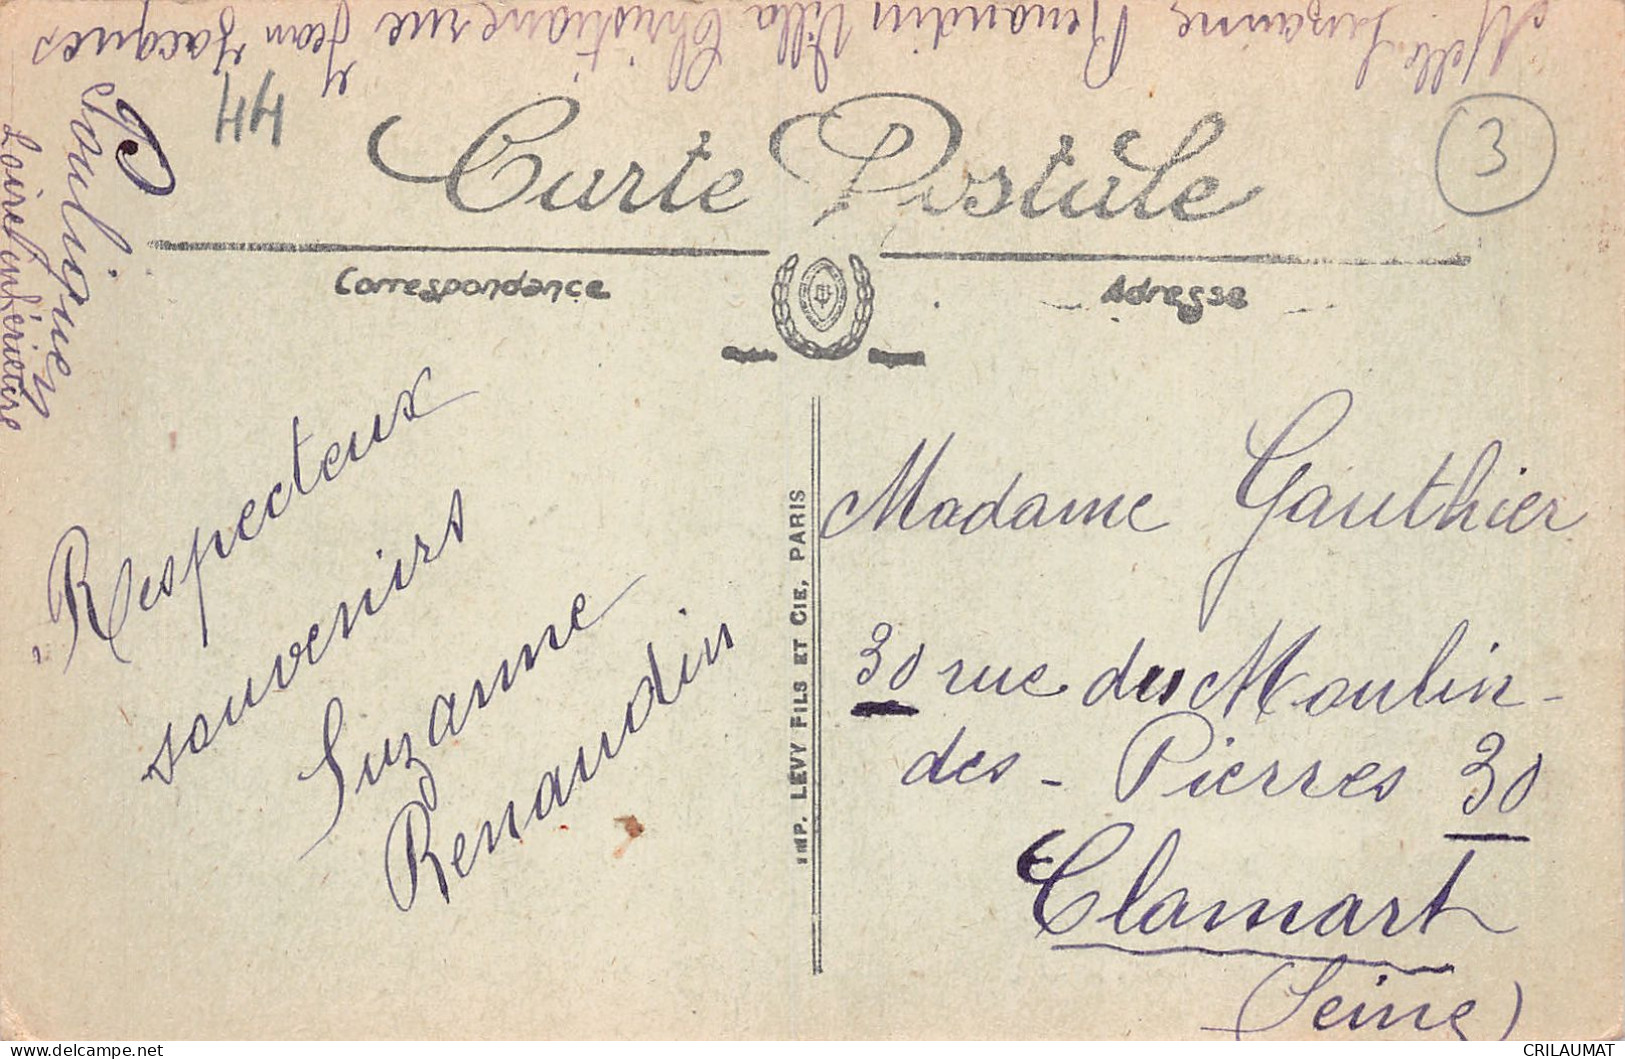 Melle Suzanne Renaudin Villa Christiane rue Jean Jacques
Pouliguen
Loire Inférieure
44
3
Carte Postale
Correspondance
Adresse
Respectueux
souvenirs
Suzanne
Renaudin
IMP. LEVY FILS ET CIE, PARIS
Madame Gauthier
30 rue du Moulin-
des-Pierres 30
Clamart
(Seine)
delcampe.net
CRILAUMAT